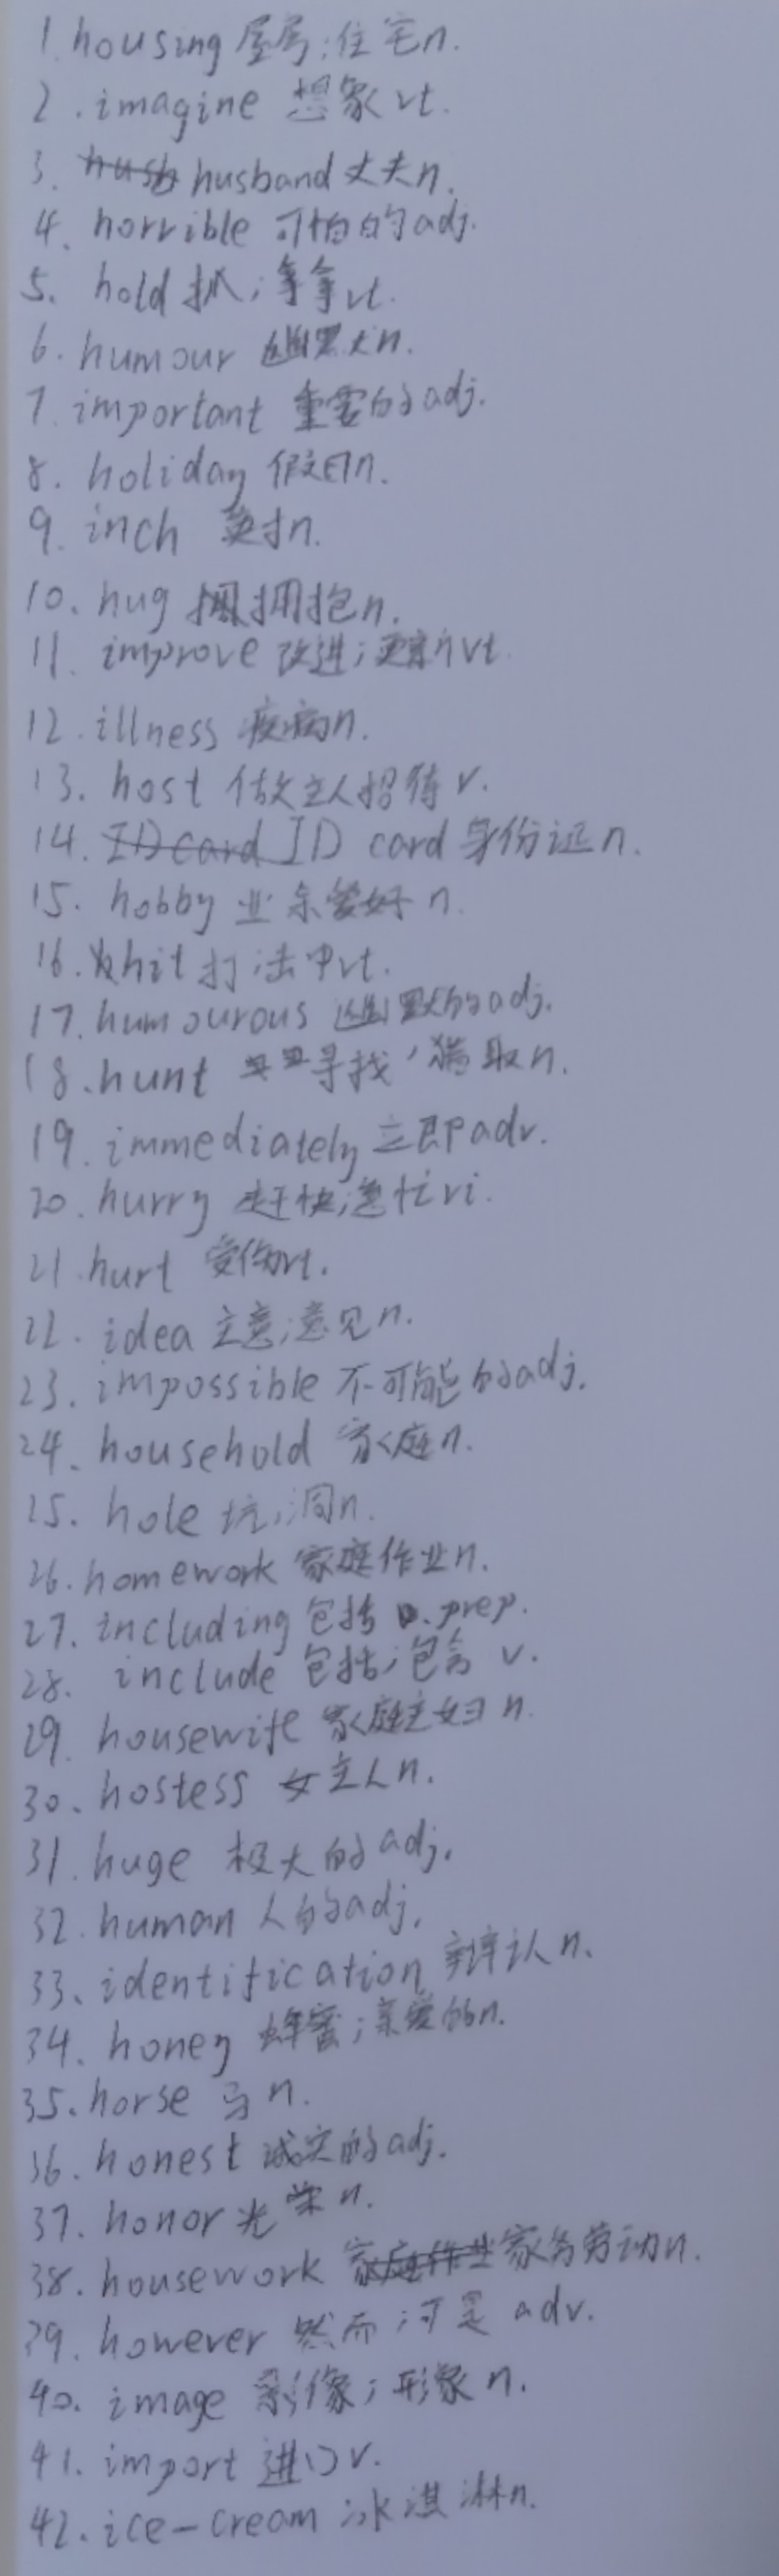 1. housing 屋房;住宅n.
2. imagine 想象vt.
3. husb husband 丈夫n.
4. horrible 可怕的adj.
5. hold 抓;拿vt.
6. humour 幽默n.
7. important 重要的adj.
8. holiday 假日n.
9. inch 英寸n.
10. hug 拥抱n.
11. improve 改进;更新vt.
12. illness 疾病n.
13. host 做主人招待v.
14. ID card ID card 身份证n.
15. hobby 业余爱好n.
16. hit 打;击中vt.
17. humourous 幽默的adj.
18. hunt 寻找,猎取n.
19. immediately 立即adv.
20. hurry 赶快;急忙vi.
21. hurt 受伤vt.
22. idea 主意;意见n.
23. impossible 不可能的adj.
24. household 家庭n.
25. hole 坑;洞n.
26. homework 家庭作业n.
27. including 包括 prep.
28. include 包括;包含 v.
29. housewife 家庭主妇n.
30. hostess 女主人n.
31. huge 极大的adj.
32. human 人的adj.
33. identification 辨认n.
34. honey 蜂蜜;亲爱的n.
35. horse 马n.
36. honest 诚实的adj.
37. honor 光荣n.
38. housework 家庭作业家务劳动n.
39. however 然而;可是 adv.
40. image 影像;形象n.
41. import 进口v.
42. ice-cream 冰淇淋n.